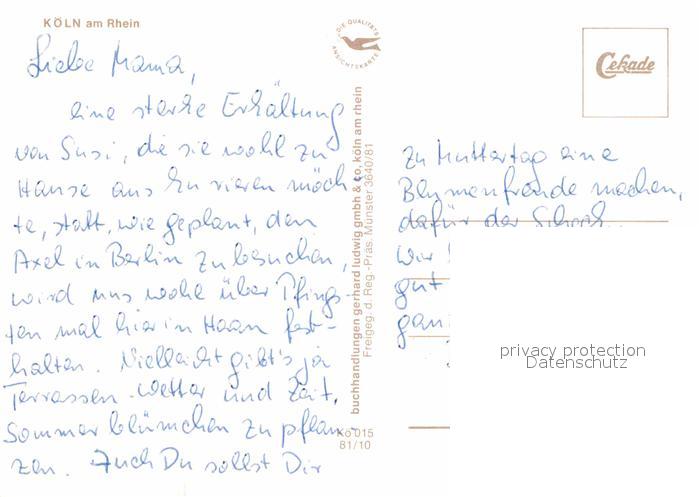 KÖLN am Rhein
DIE QUALITÄTS
ANSICHTSKARTE
Cekade
Liebe Mama,
eine starke Erkältung
von Susi, die sie wohl zu
Hause aus kurieren möch
te, statt, wie geplant, den
Axel in Berlin zu besuchen,
wird uns wohl über Pfings-
ten mal hier in Haan fest-
halten. Vielleicht gibt's ja
Terrassen-Wetter und Zeit,
Sommerblümchen zu pflan-
zen. Auch Du sollst Dir
buchhandlungen gerhard ludwig gmbh & co, köln am rhein
Freigeg. d. Reg.-Präs. Münster 3640/81
Kö 015
81/10
zu Muttertag eine
Blumenfreude machen,
dafür der Scheck.
Wir
gut
gan
privacy protection
Datenschutz